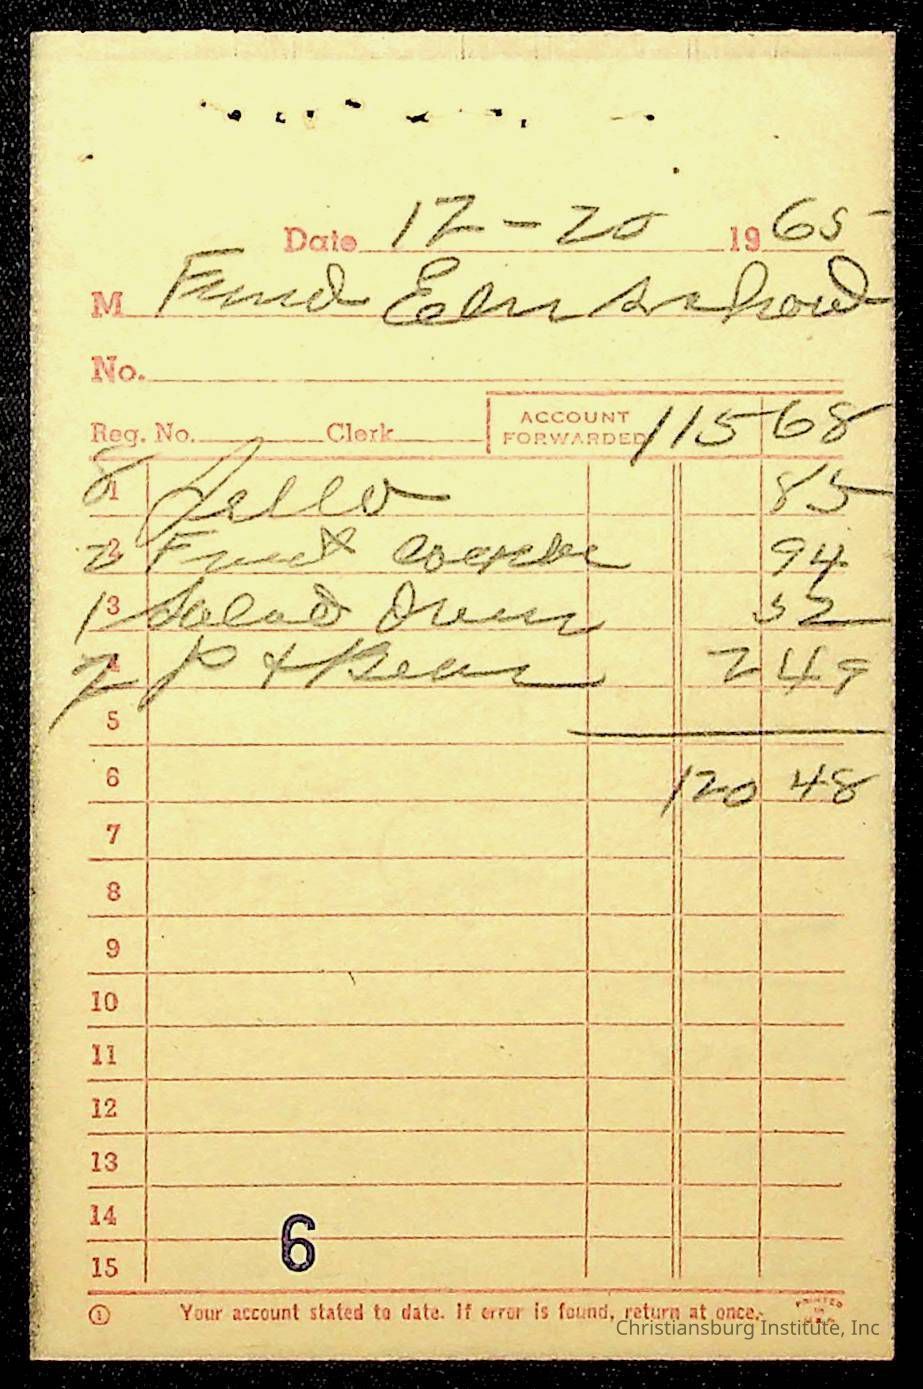 Date 12-20 1965
M Friend Elm School
No.
Reg. No. Clerk ACCOUNT FORWARDED 115 68
8 1 Jello 85
2 2 Fruit 94
1 3 Salad Dress 52
4 P & Beans 2 49
5
6 120 48
7
8
9
10
11
12
13
14
15
6
1 Your account stated to date. If error is found, return at once.
PRINTED IN U.S.A.
Christiansburg Institute, Inc